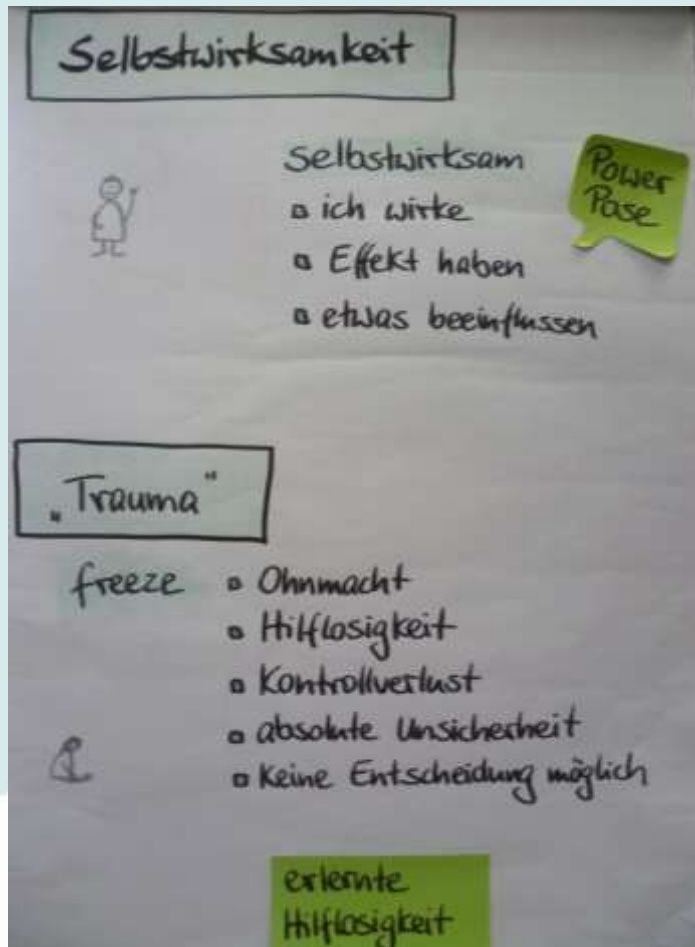 Selbstwirksamkeit
Selbstwirksam
▫ ich wirke
▫ Effekt haben
▫ etwas beeinflussen
Power
Pose
„Trauma“
freeze ▫ Ohnmacht
▫ Hilflosigkeit
▫ Kontrollverlust
▫ absolute Unsicherheit
▫ keine Entscheidung möglich
erlernte
Hilflosigkeit